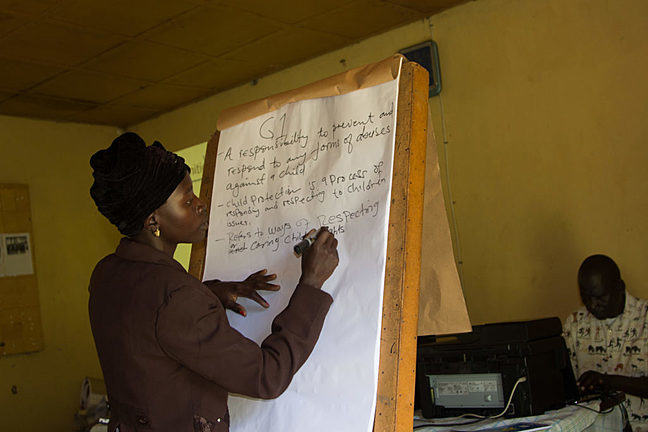 G1
- A responsibility to prevent and
respond to any forms of abuses
against a child
- Child Protection is a Process of
responding and respecting to children
issues.
- Refers to ways of Respecting
and Caring Child